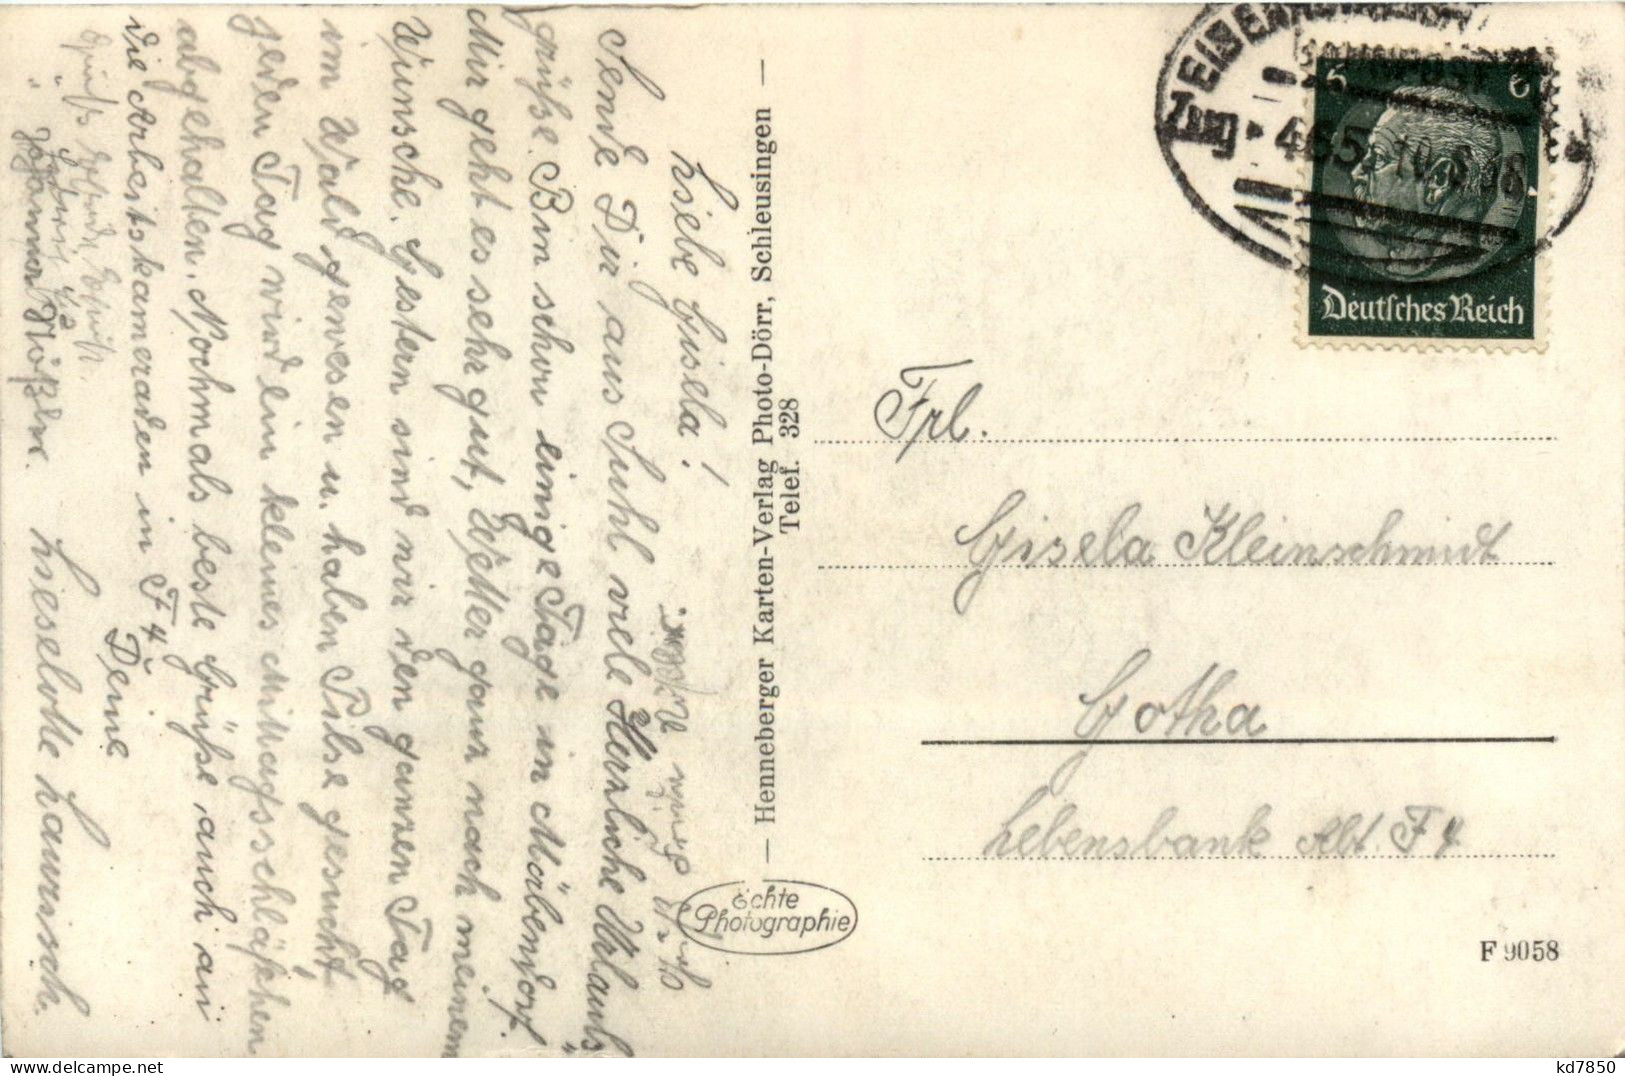 Liebe Gisela!
Sende Dir aus Suhl viele Herzliche Urlaubs
grüße. Bin schon einige Tage in Mäbendorf.
Mir geht es sehr gut, Wetter ganz nach meinem
Wunsche. Gestern sind wir den ganzen Tag
im Wald gewesen u. haben Pilse gesucht,
jeden Tag wird ein kleines Mittagsschläfchen
abgehalten. Nochmals beste Grüße, auch an
die Arbeitskameraden in F 4
Deine
Lieselotte
— Henneberger Karten-Verlag Photo-Dörr, Schleusingen —
Telef. 328
Echte
Photographie
Zug 465 10.8.38
6
Deutsches Reich
Frl.
Gisela Kleinschmidt
Gotha
Lebensbank Abt. F 4
F 9058
kd7850